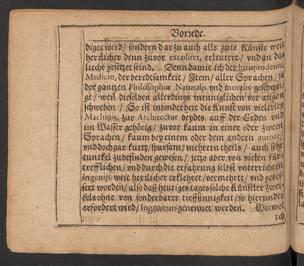 Vorrede.
diget wird/ sondern dar zu auch alle gute Künste weit
herrlicher denn zuvor excoliret, erleutert/ vnd an das
liecht gesetzet seind. Denn damit ich der Jurisprudentz,
Medicin, der beredsamkeit/ Item/ aller Sprachen/ ja
der gantzen Philosophiæ Naturalis vnd moralis geschweige
ge/ weil dieselben allerdings menniglichen vor augen
schweben/ So ist insonderheit die Kunst von vielerley
Machinis, zur Architectur beydes auff der Erden vnd
im Wasser gehörig/ zuvor kaum in einer oder zweien
Sprachen/ kaum bey einem oder dem andern autore,
vnd doch gar kurtz/ sparsam/ mehrern theils/ auch sehr
tunckel zubefinden gewesen/ jetzo aber von vielen für-
trefflichen/ vnd durch die erfahrung selbst vnterrichteten
ingenijs weit herrlicher erklehret/ vermehret/ vnd gebes-
sert worden/ also daß heutiges tages solche Künstler zweif-
fels ohne von sonderbarer tieffsinnigkeit/ so hierunder
erfordert wird/ Ingenieurs genennet werden. Wiewol
ich